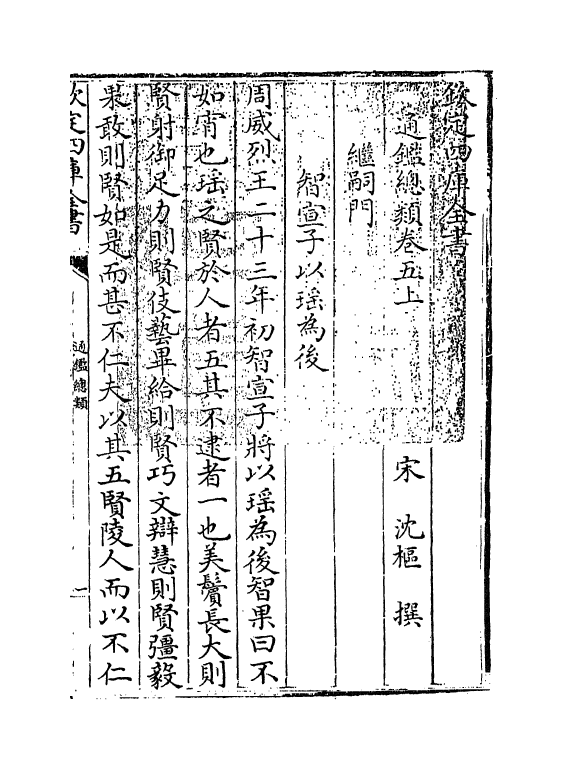 欽定四庫全書
通鑑總類卷五上
宋 沈樞 撰
繼嗣門
智宣子以瑶為後
周威烈王二十三年初智宣子將以瑶為後智果曰不
如宵也瑶之賢於人者五其不逮者一也美鬢長大則
賢射御足力則賢伎藝畢給則賢巧文辯慧則賢彊毅
果敢則賢如是而甚不仁夫以其五賢陵人而以不仁
欽定四庫全書
通鑑總類
一